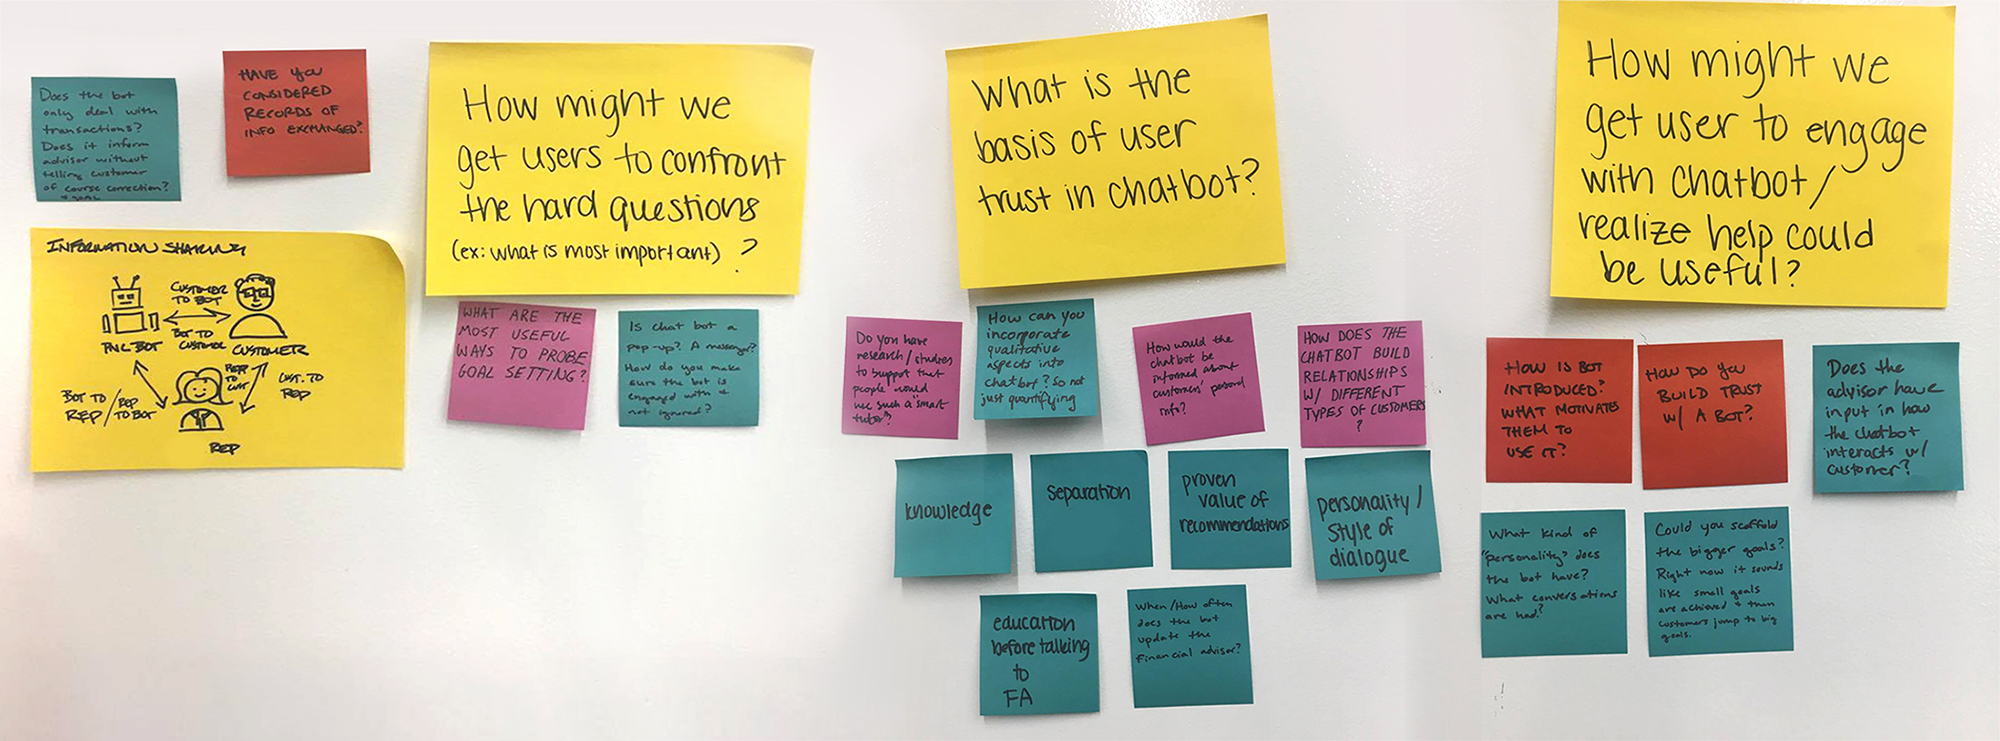 Does the bot
only deal with
transactions?
Does it inform
advisor without
telling customer
of course correction?
HAVE YOU
CONSIDERED
RECORDS OF
INFO EXCHANGED?
INFORMATION SHARING
CUSTOMER
TO BOT
BOT TO
CUSTOMER
PNC BOT
CUSTOMER
REP
TO
CUST
CUST. TO
REP
BOT TO
REP/REP
TO BOT
REP
How might we
get users to confront
the hard questions
(ex: what is most important) ?
WHAT ARE THE
MOST USEFUL
WAYS TO PROBE
GOAL SETTING?
Is chat bot a
pop-up? A messenger?
How do you make
sure the bot is
engaged with &
not ignored?
What is the
basis of user
trust in chatbot?
Do you have
research/studies
to support that
people would
use such a "smart
tutor"?
How can you
incorporate
qualitative
aspects into
chatbot? So not
just quantifying
How would the
chatbot be
informed about
customers' personal
info?
HOW DOES THE
CHATBOT BUILD
RELATIONSHIPS
W/ DIFFERENT
TYPES OF CUSTOMERS
?
knowledge
separation
proven
value of
recommendations
personality/
style of
dialogue
education
before talking
to
FA
When/How often
does the bot
update the
financial advisor?
How might we
get user to engage
with chatbot/
realize help could
be useful?
HOW IS BOT
INTRODUCED?
WHAT MOTIVATES
THEM TO
USE IT?
HOW DO YOU
BUILD TRUST
W/ A BOT?
Does the
advisor have
input in how
the chatbot
interacts w/
customer?
What kind of
"personality" does
the bot have?
What conversations
are had?
Could you scaffold
the bigger goals?
Right now it sounds
like small goals
are achieved & then
customers jump to big
goals.